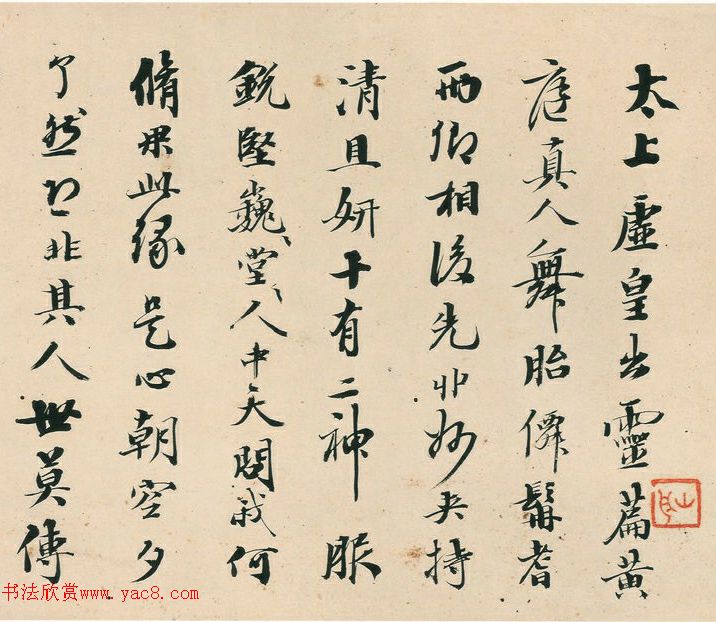 太上虛皇出靈篇黃
庭真人舞胎僊髯耆
兩卿相後先丱妙夾持
清且妍十有二神服
銳堅巍〻堂〻人中天問我何
脩果此緣是心朝空夕
了然恐非其人世莫傳
书法欣赏www.yac8.com